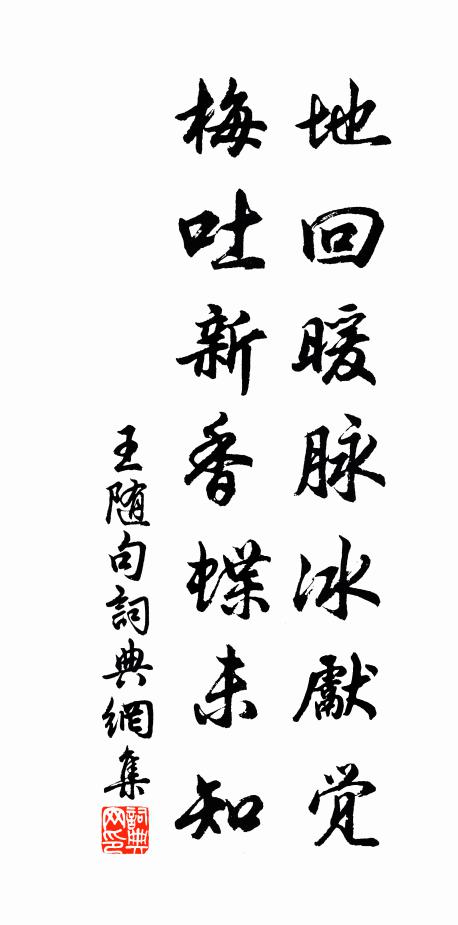 地回暖脉冰獻觉
梅吐新香蝶未知
王随句詞典網集
詞典网印